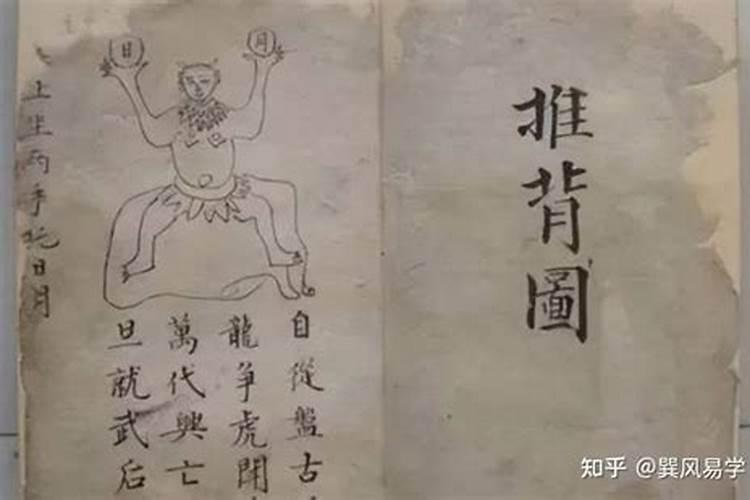 推背圖
月
日
自從盤古
龍争虎
萬代興亡
旦就武后
上坐两手托日月
知乎 @巽风易学